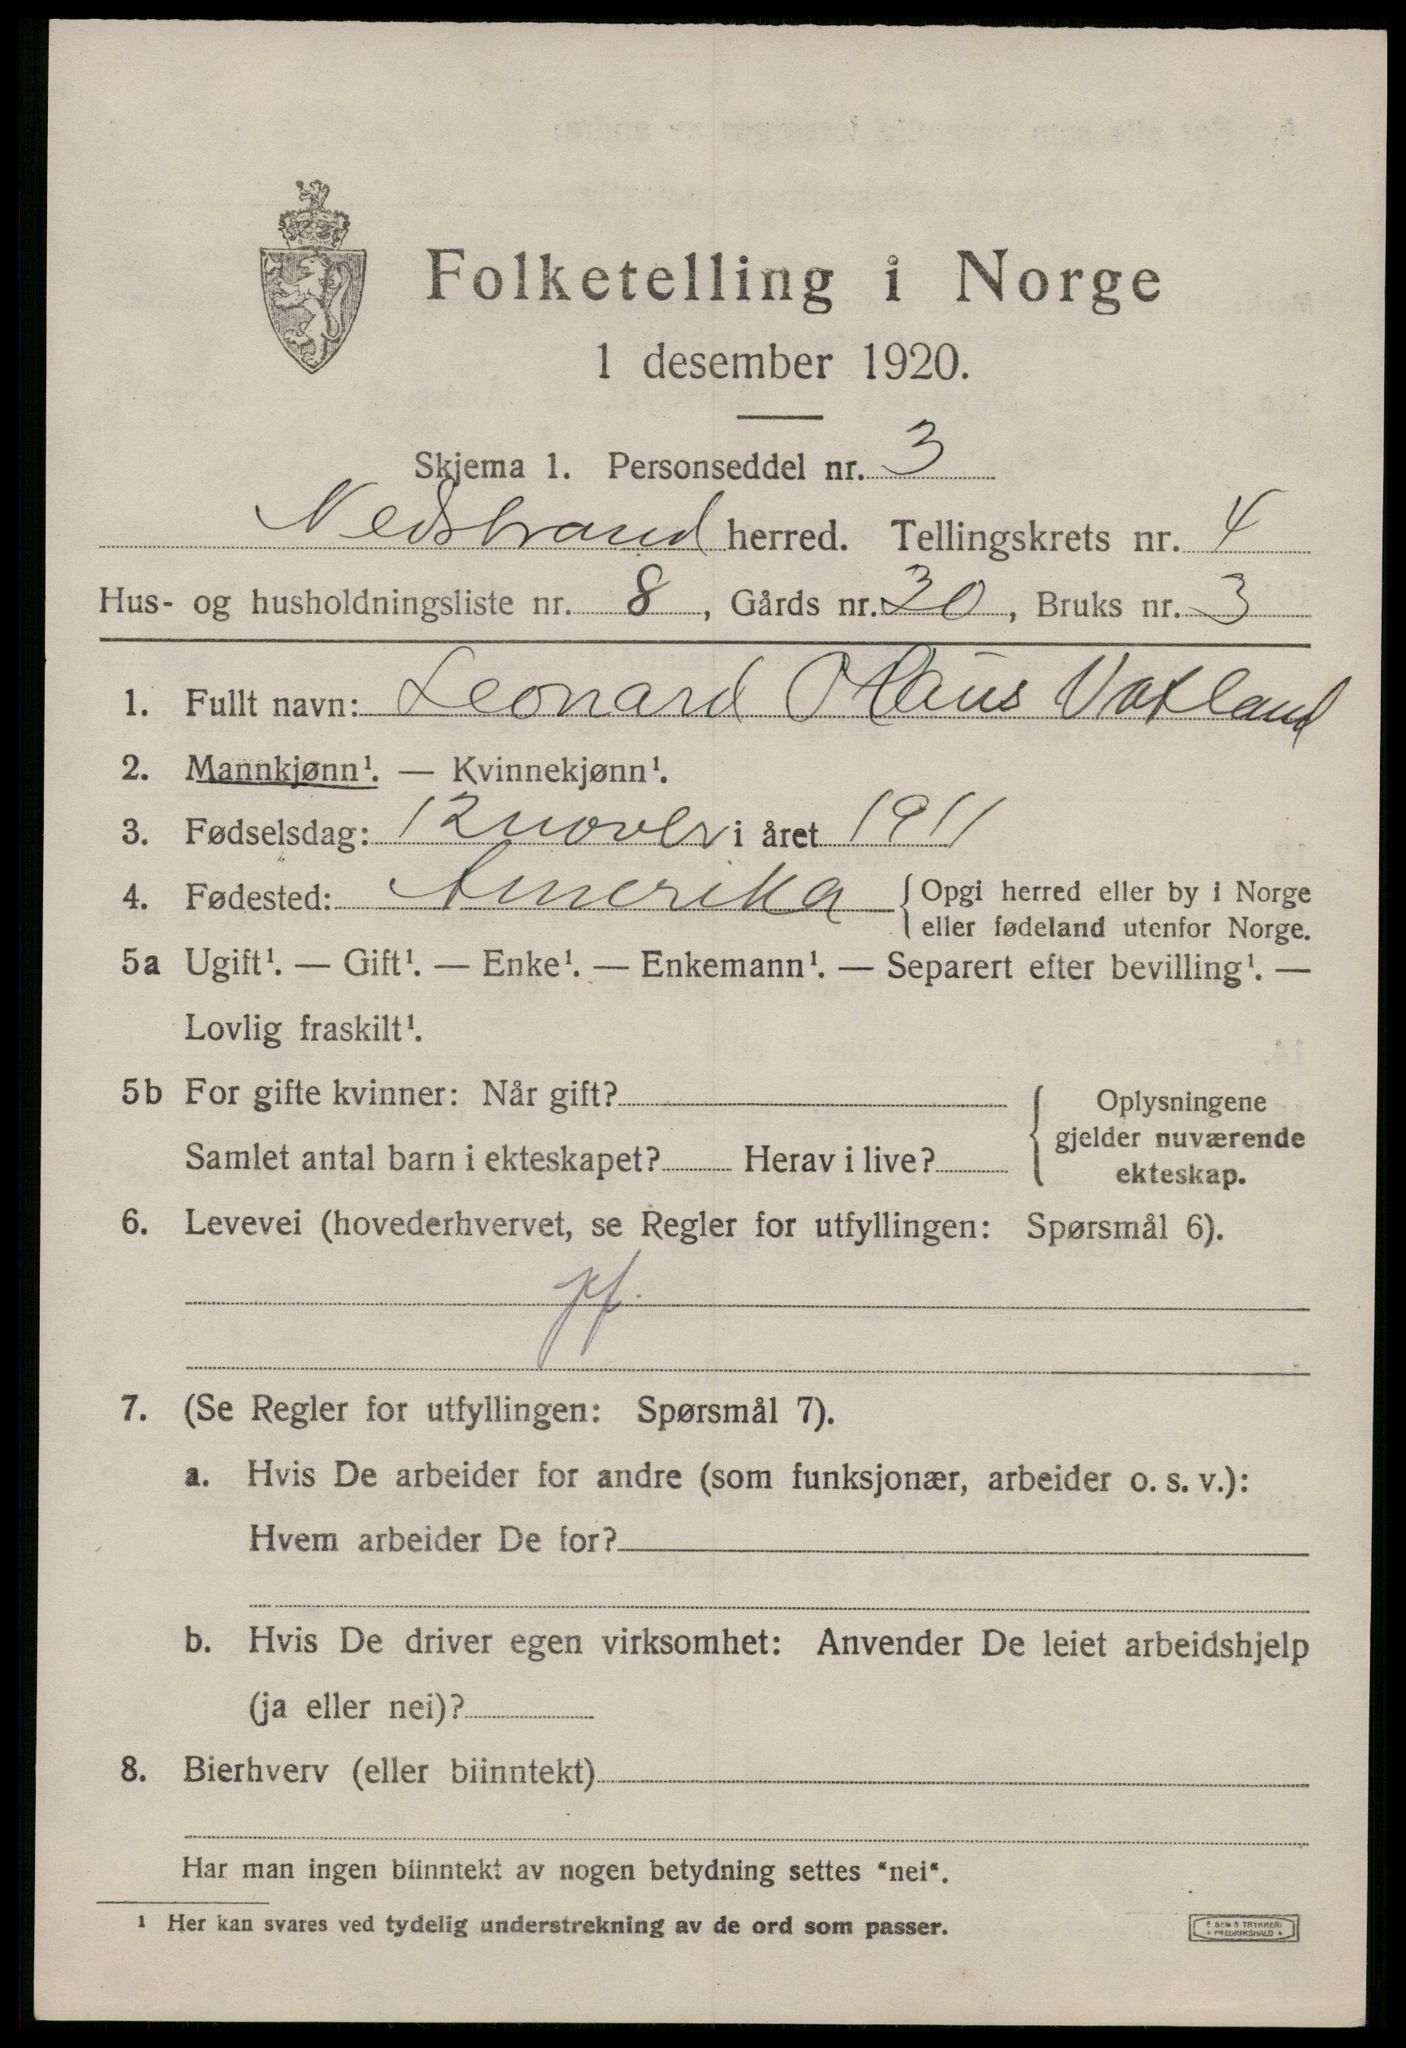 Folketelling i Norge
1 desember 1920.
Skjema 1. Personseddel nr. 3
Nedstrand herred. Tellingskrets nr. 4
Hus- og husholdningsliste nr. 8, Gårds nr. 30, Bruks nr. 3
1. Fullt navn: Leonard Olaus Vatland
2. Mannkjønn¹. — Kvinnekjønn¹.
3. Fødselsdag: 12 nover i året 1911
4. Fødested: Amerika {Opgi herred eller by i Norge
eller fødeland utenfor Norge.
5a Ugift¹. — Gift¹. — Enke¹. — Enkemann¹. — Separert efter bevilling¹. —
Lovlig fraskilt¹.
5b For gifte kvinner: Når gift?
Samlet antal barn i ekteskapet? Herav i live?
Oplysningene
gjelder nuværende
ekteskap.
6. Levevei (hovederhvervet, se Regler for utfyllingen: Spørsmål 6).
7. (Se Regler for utfyllingen: Spørsmål 7).
a. Hvis De arbeider for andre (som funksjonær, arbeider o. s. v.):
Hvem arbeider De for?
b. Hvis De driver egen virksomhet: Anvender De leiet arbeidshjelp
(ja eller nei)?
8. Bierhverv (eller biinntekt)
Har man ingen biinntekt av nogen betydning settes "nei".
¹ Her kan svares ved tydelig understrekning av de ord som passer.
E SEM S TRYKKERI
* FREDRIKSHALD *